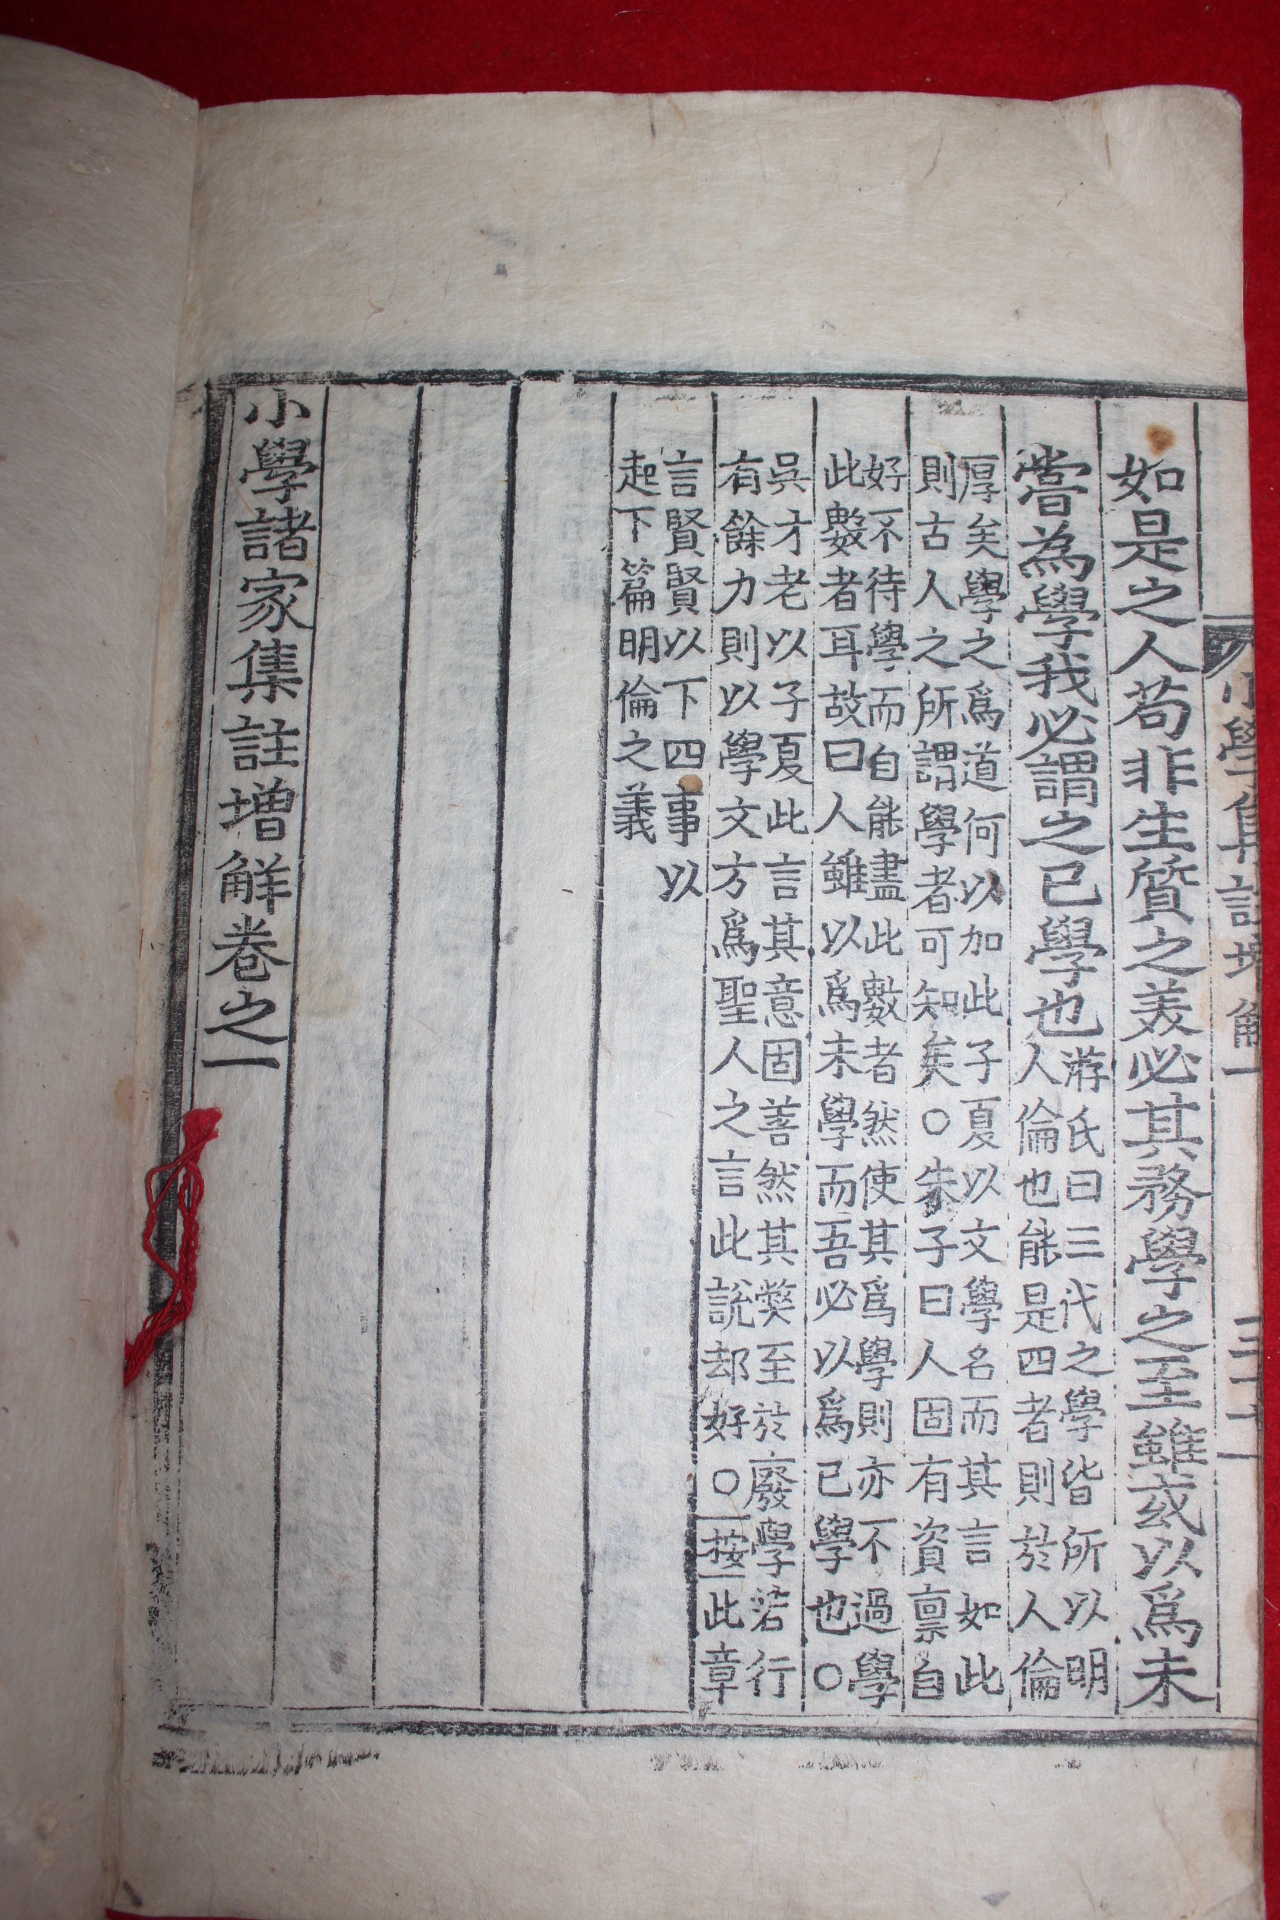 小學集註增解一
如是之人苟非生質之美必其務學之至雖或以爲未
嘗為學我必謂之已學也
游氏曰三代之學皆所以明
人倫也能是四者則於人倫
厚矣學之爲道何以加此子夏以文學名而其言如此
則古人之所謂學者可知矣○朱子曰人固有資稟自
好不待學而自能盡此數者然使其爲學則亦不過學
此數者耳故曰人雖以爲未學而吾必以爲已學也○
吳才老以子夏此言其意固善然其弊至於廢學若行
有餘力則以學文方爲聖人之言此說却好○按此章
言賢賢以下四事以
起下篇明倫之義
小學諸家集註增解卷之一